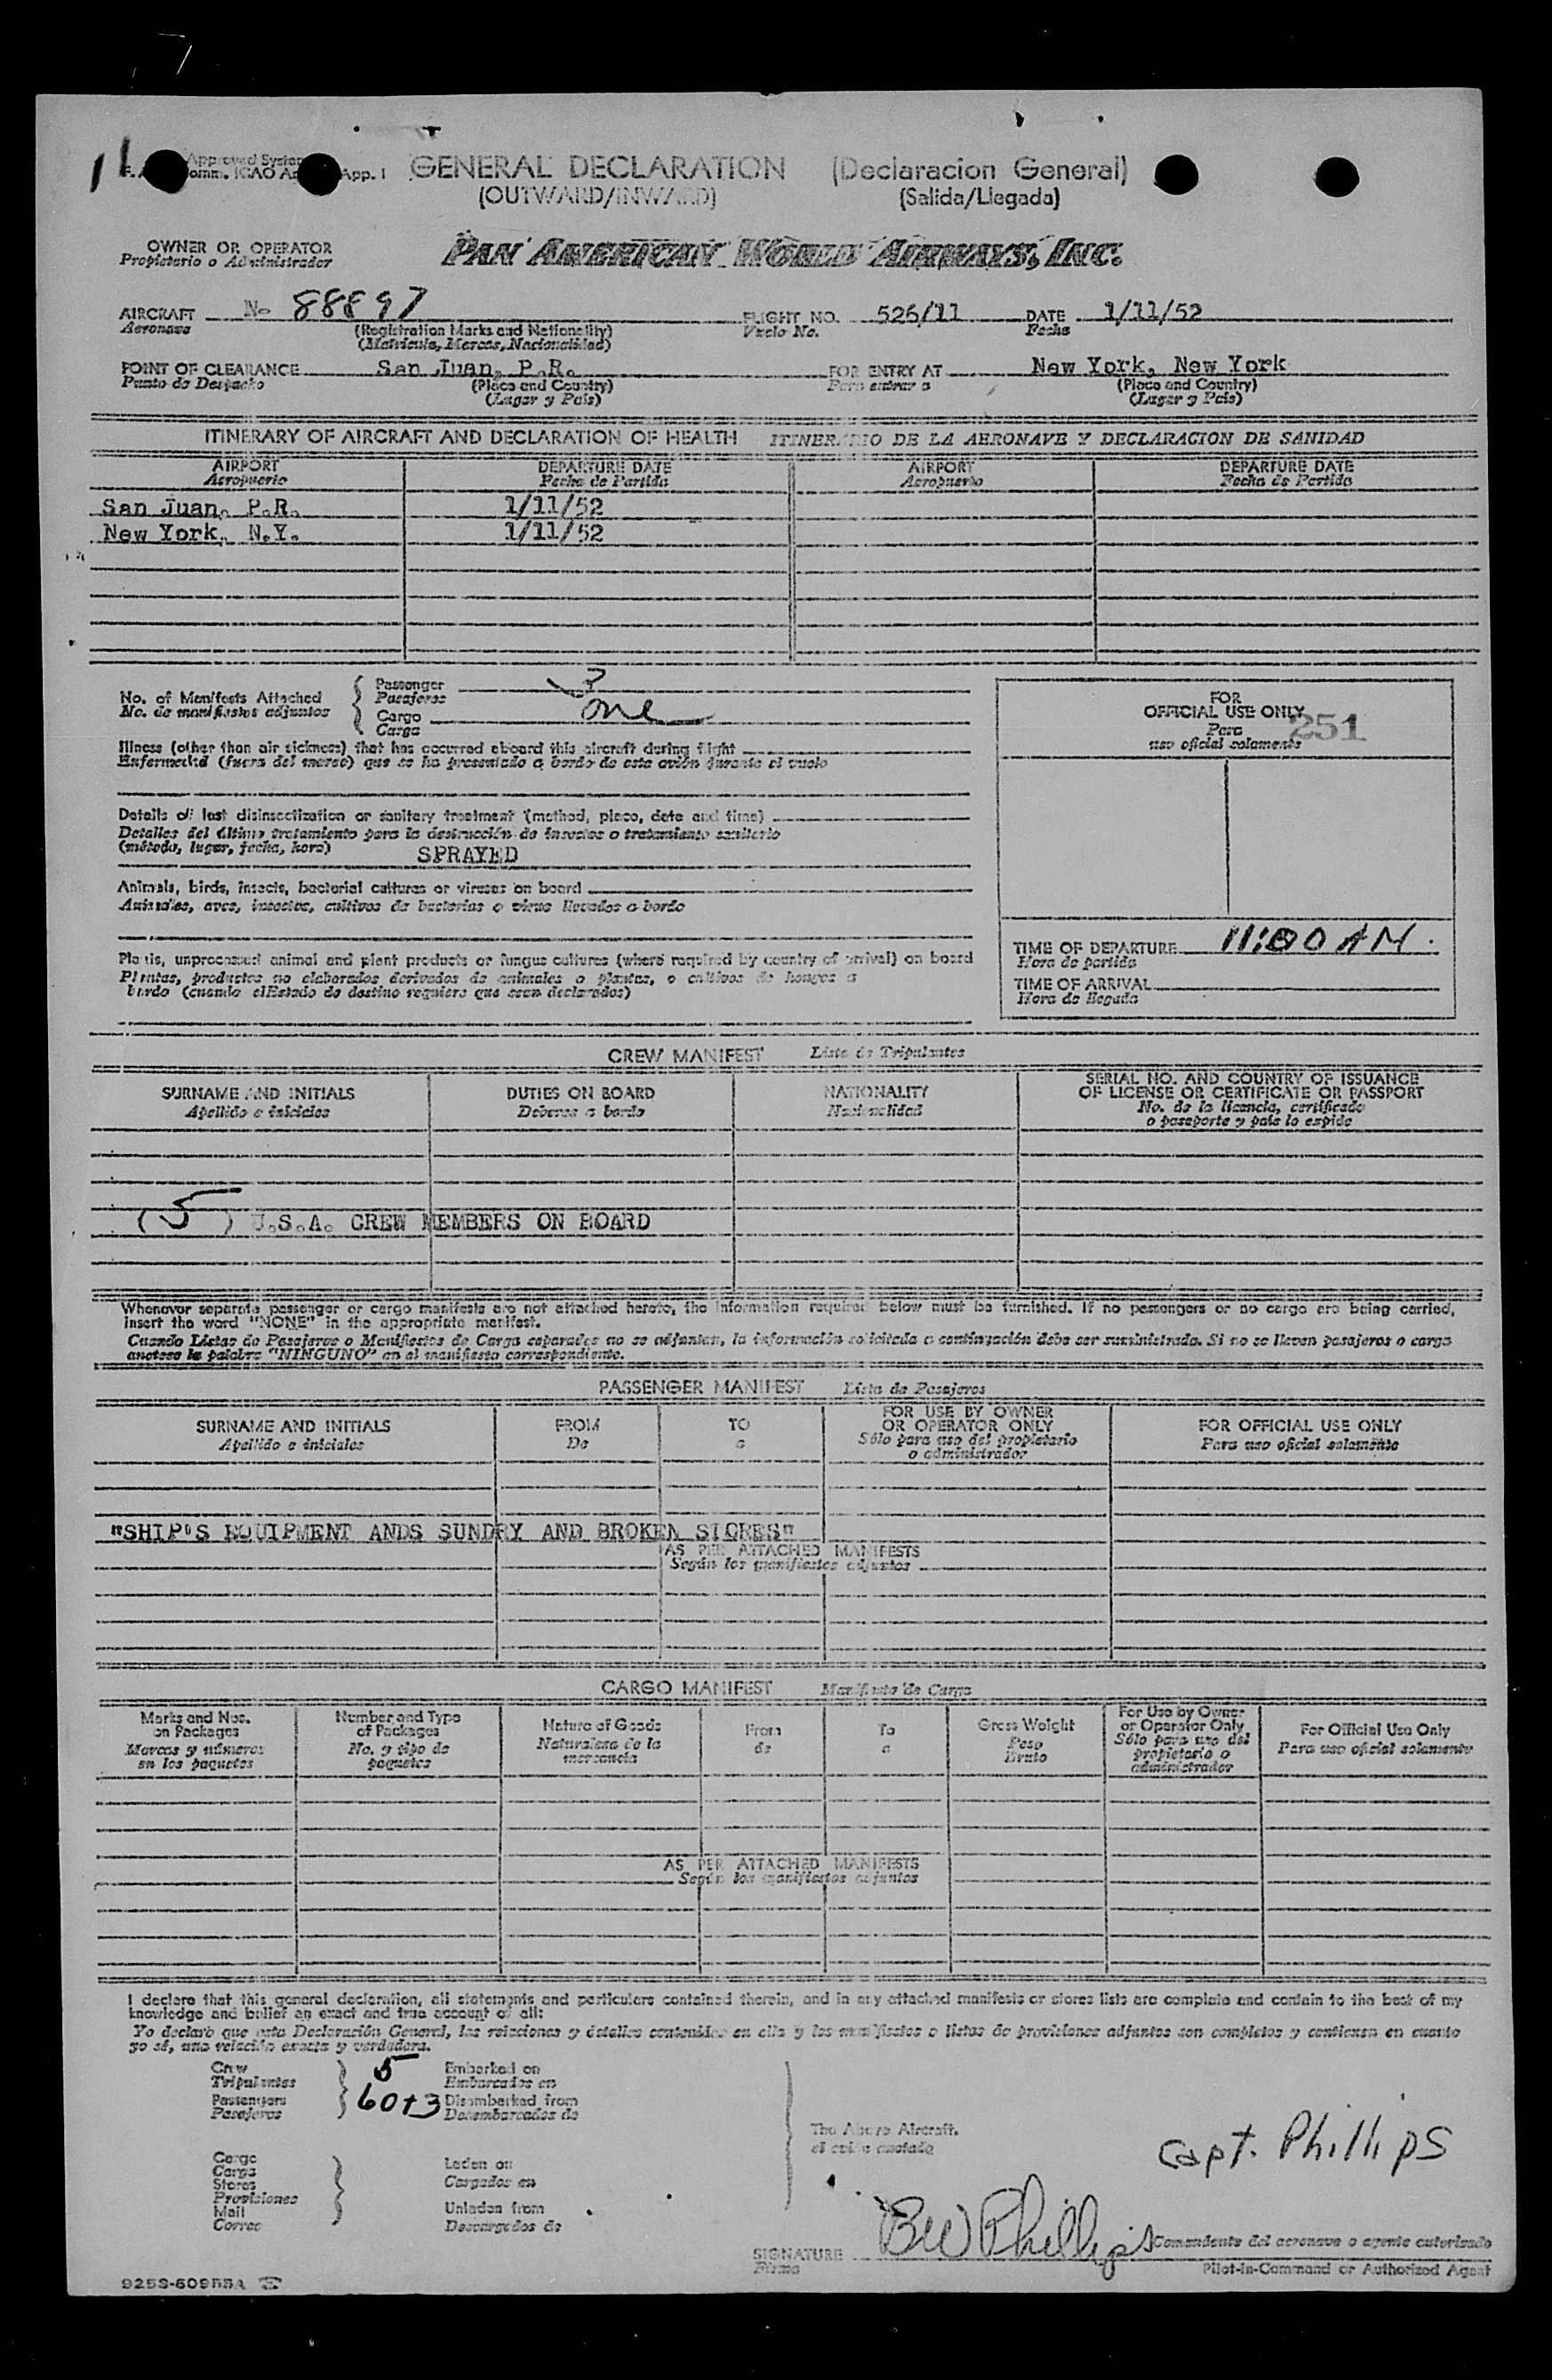 GENERAL DECLARATION (Declaracion General)
(OUTWARD/INWARD) (Salida/Llegada)
OWNER OR OPERATOR
Propietario o Administrador
PAN AMERICAN WORLD AIRWAYS, INC.
AIRCRAFT N- 88897 FLIGHT NO. 526/11 DATE 1/11/52
Aeronave (Registration Marks and Nationality) Vuelo No. Fecha
(Matricula, Marcas, Nacionalidad)
POINT OF CLEARANCE San Juan, P.R. FOR ENTRY AT New York, New York
Punto de Despacho (Place and Country) Para entrar a (Place and Country)
(Lugar y Pais) (Lugar y Pais)
ITINERARY OF AIRCRAFT AND DECLARATION OF HEALTH ITINERARIO DE LA AERONAVE Y DECLARACION DE SANIDAD
AIRPORT DEPARTURE DATE AIRPORT DEPARTURE DATE
Aeropuerto Fecha de Partida Aeropuerto Fecha de Partida
San Juan, P.R. 1/11/52
New York, N.Y. 1/11/52
No. of Manifests Attached
No. de manifiestos adjuntos
Passenger 3
Pasajeros
Cargo one
Carga
FOR
OFFICIAL USE ONLY
Para
uso oficial solamente
251
Illness (other than air sickness) that has occurred aboard this aircraft during flight
Enfermedad (fuera del mareo) que se ha presentado a bordo de este avión durante el vuelo
Details of last disinsectization or sanitary treatment (method, place, date and time)
Detalles del último tratamiento para la destrucción de insectos o tratamiento sanitario
(método, lugar, fecha, hora)
SPRAYED
Animals, birds, insects, bacterial cultures or viruses on board
Animales, aves, insectos, cultivos de bacterias o virus llevados a bordo
Plants, unprocessed animal and plant products or fungus cultures (where required by country of arrival) on board
Plantas, productos no elaborados derivados de animales o plantas, o cultivos de hongos a
bordo (cuando elEstado de destino requiere que sean declarados)
TIME OF DEPARTURE 11:00 AM.
Hora de partida
TIME OF ARRIVAL
Hora de llegada
CREW MANIFEST Lista de Tripulantes
SURNAME AND INITIALS DUTIES ON BOARD NATIONALITY SERIAL NO. AND COUNTRY OF ISSUANCE
OF LICENSE OR CERTIFICATE OR PASSPORT
Apellido e iniciales Deberes a bordo Nacionalidad No. de la licencia, certificado
o pasaporte y pais lo expide
(5) U.S.A. CREW MEMBERS ON BOARD
Whenever separate passenger or cargo manifests are not attached hereto, the information required below must be furnished. If no passengers or no cargo are being carried,
insert the word "NONE" in the appropriate manifest.
Cuando Listas de Pasajeros o Manifiestos de Carga separados no se adjuntan, la información solicitada a continuación debe ser suministrada. Si no se llevan pasajeros o carga
anotese la palabra "NINGUNO" en el manifiesto correspondiente.
PASSENGER MANIFEST Lista de Pasajeros
SURNAME AND INITIALS FROM TO FOR USE BY OWNER
OR OPERATOR ONLY FOR OFFICIAL USE ONLY
Apellido e iniciales De a Sólo para uso del propietario
o administrador Para uso oficial solamente
"SHIP'S EQUIPMENT ANDS SUNDRY AND BROKEN STORES"
AS PER ATTACHED MANIFESTS
Según los manifiestos adjuntos
CARGO MANIFEST Manifiesto de Carga
Marks and Nos.
on Packages
Marcas y números
en los paquetes
Number and Type
of Packages
No. y tipo de
paquetes
Nature of Goods
Naturaleza de la
mercancia
From
de
To
a
Gross Weight
Peso
Bruto
For Use by Owner
or Operator Only
Sólo para uso del
propietario o
administrador
For Official Use Only
Para uso oficial solamente
AS PER ATTACHED MANIFESTS
Según los manifiestos adjuntos
I declare that this general declaration, all statements and particulars contained therein, and in any attached manifests or stores lists are complete and contain to the best of my
knowledge and belief an exact and true account of all:
Yo declaro que esta Declaración General, las relaciones y detalles contenidos en ella y los manifiestos o listas de provisiones adjuntos son completos y contienen en cuanto
yo sé, una relación exacta y verdadera.
Crew 5 Embarked on
Tripulantes Embarcados en
Passengers 60+3 Disembarked from
Pasajeros Desembarcados de
The Above Aircraft.
el avión anotado
Capt. Phillips
Cargo
Carga
Stores
Provisiones
Mail
Correo
Laden on
Cargados en
Unladen from
Descargados de
SIGNATURE BW Phillips
Firma
Comandante del aeronave o agente autorizado
Pilot-in-Command or Authorized Agent